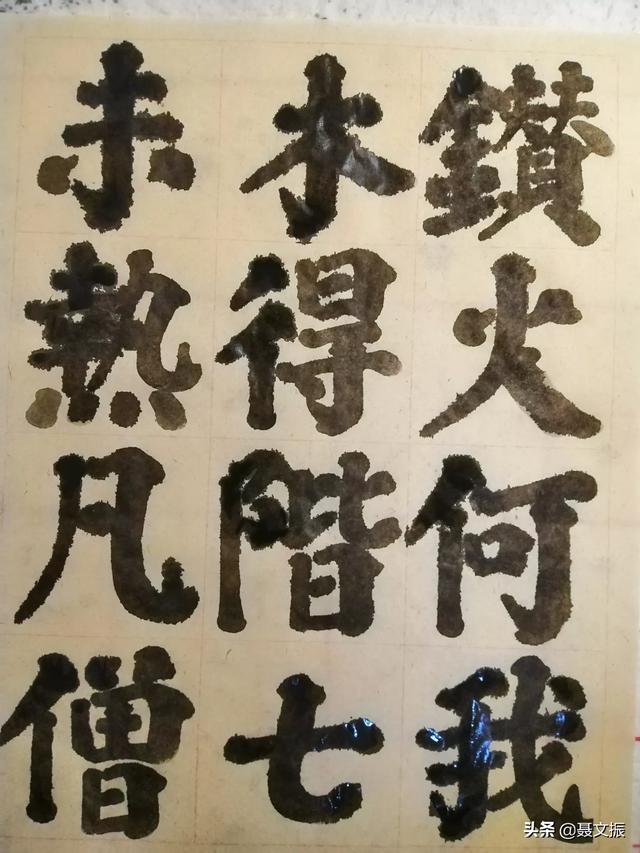 鑽火何我
木得階七
未熱凡僧
头条 @聂文振